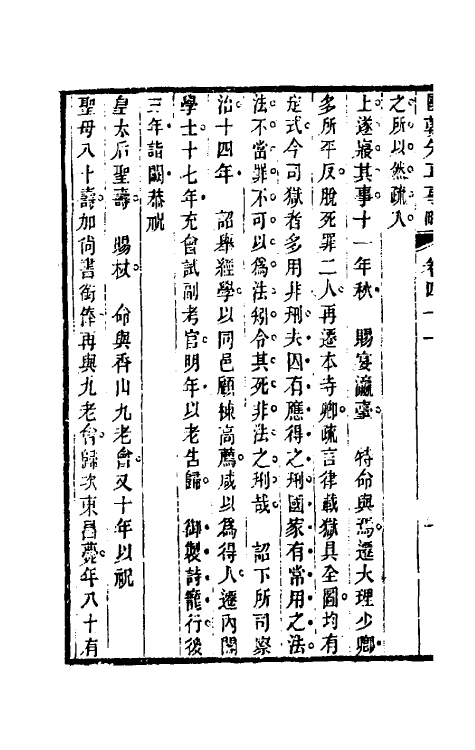 國朝先正事略　卷四十一
之所以然疏入
上遂寢其事十一年秋　賜宴瀛臺　特命與焉遷大理少卿
多所平反脫死罪二人再遷本寺卿疏言律載獄具全圖均有
定式今司獄者多用非刑夫囚有應得之刑國家有常用之法
法不當罪不可以爲法矧令其死非法之刑哉　詔下所司察
治十四年　詔舉經學以同邑顧棟高薦咸以爲得人遷內閣
學士十七年充會試副考官明年以老告歸　御製詩寵行後
三年詣闕恭祝
皇太后聖壽　賜杖　命與香山九老會又十年以祝
聖母八十壽加尚書銜俸再與九老會歸次東昌薨年八十有